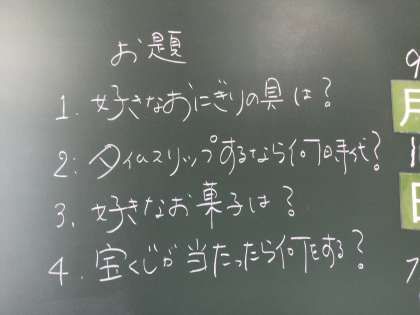 お題
1. 好きなおにぎりの具は?
2. タイムスリップするなら何時代?
3. 好きなお菓子は?
4. 宝くじが当たったら何をする?
9
月
1
日
7